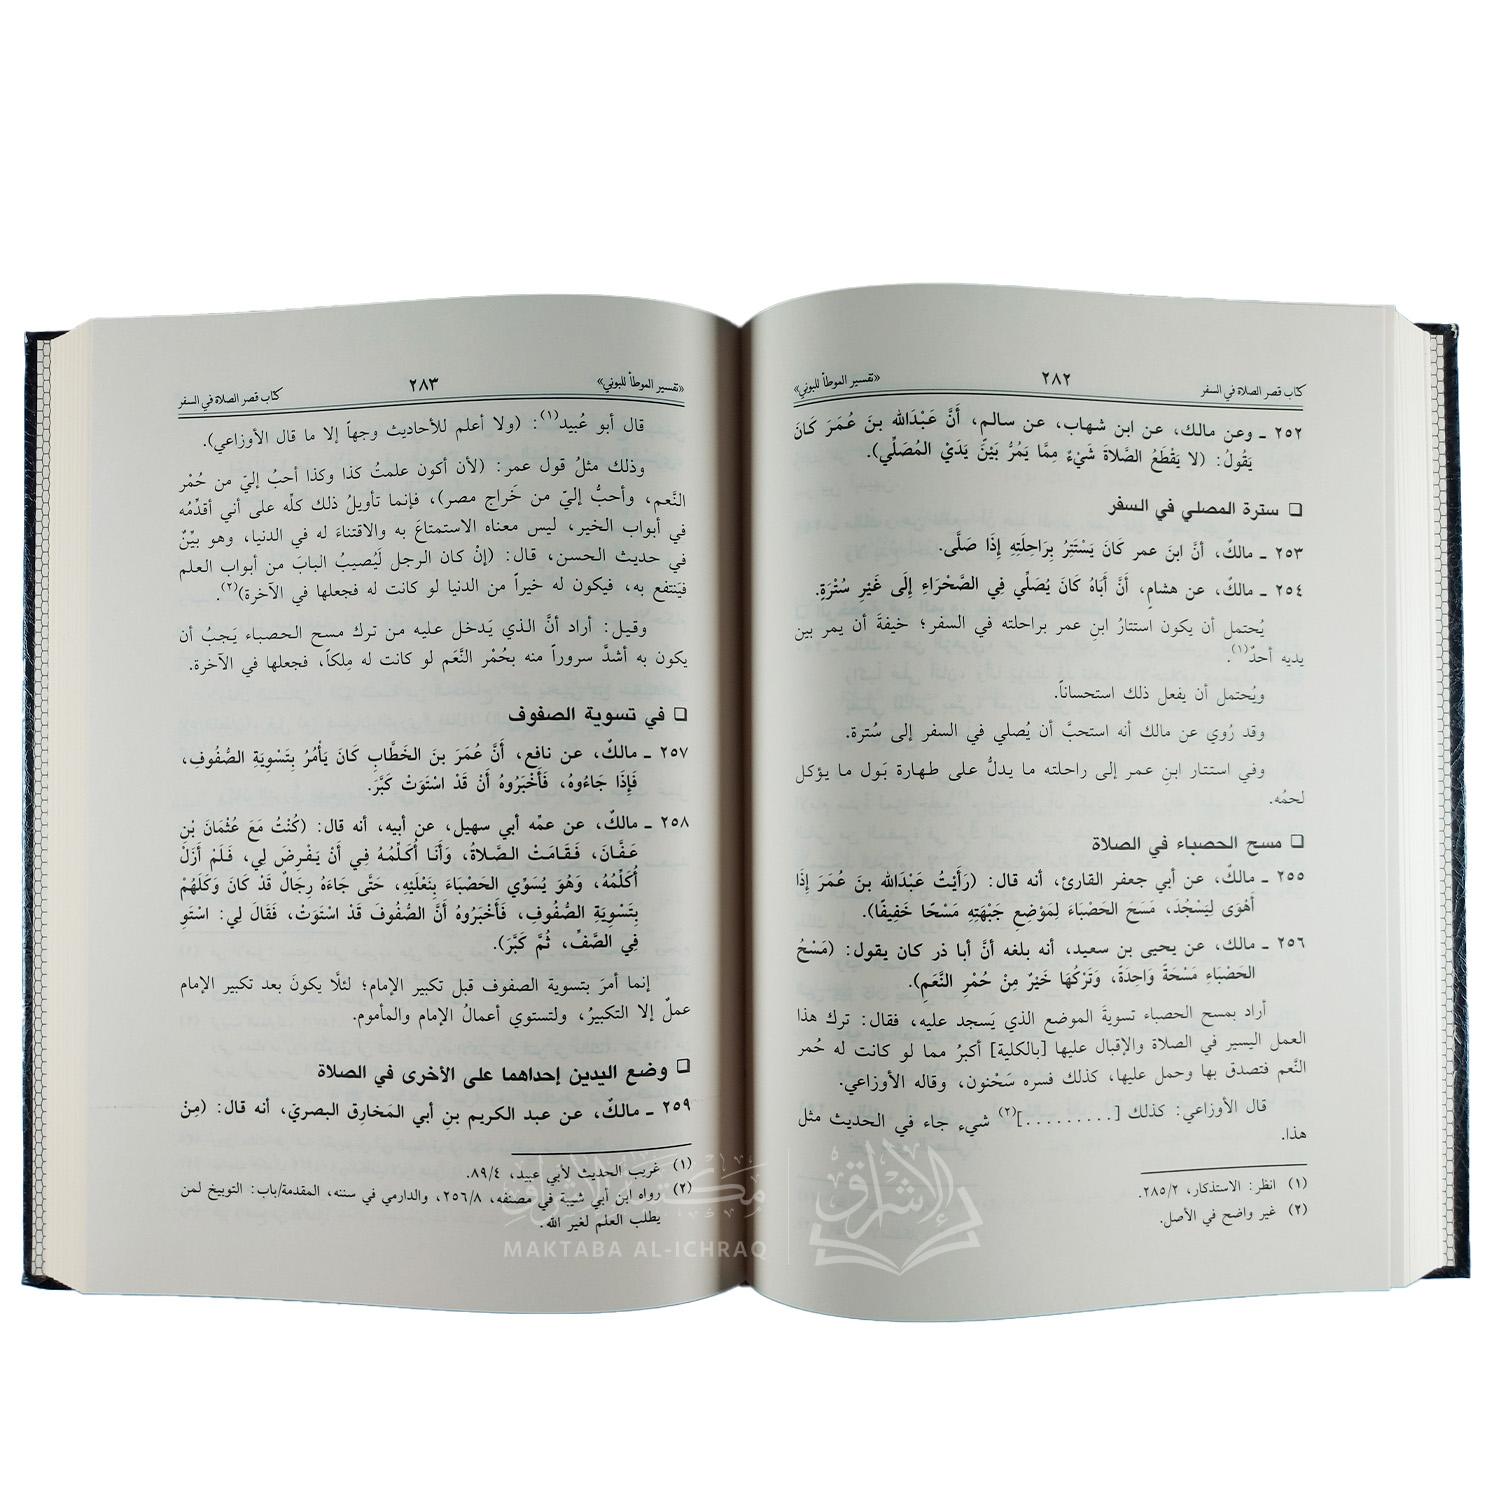 كتاب قصر الصلاة في السفر ٢٨٢ «تفسير الموطأ للبوني»
٢٥٢ ـ وعن مالك، عن ابن شهاب، عن سالم، أَنَّ عَبْدَالله بنَ عُمَرَ كَانَ
يَقُولُ: (لا يَقْطَعُ الصَّلاةَ شَيْءٌ مِمَّا يَمُرُّ بَيْنَ يَدَيْ المُصَلِّي).
❑ سترة المصلي في السفر
٢٥٣ ـ مالكٌ، أنَّ ابنَ عمر كَانَ يَسْتَتِرُ بِرَاحِلَتِهِ إِذَا صَلَّى.
٢٥٤ ـ مالكٌ، عن هشامٍ، أَنَّ أَبَاهُ كَانَ يُصَلِّي فِي الصَّحْرَاءِ إِلَى غَيْرِ سُتْرَةٍ.
يُحتمل أن يكون استتارُ ابنِ عمر براحلته في السفر؛ خيفةَ أن يمر بين
يديه أحدٌ(١).
ويُحتمل أن يفعل ذلك استحساناً.
وقد رُوي عن مالك أنه استحبَّ أن يُصلي في السفر إلى سُترة.
وفي استتار ابنِ عمر إلى راحلته ما يدلُّ على طهارة بَول ما يؤكل
لحمُه.
❑ مسح الحصباء في الصلاة
٢٥٥ ـ مالكٌ، عن أبي جعفر القارئ، أنه قال: (رَأَيْتُ عَبْدَالله بنَ عُمَرَ إِذَا
أَهْوَى لِيَسْجُدَ، مَسَحَ الحَصْبَاءَ لِمَوْضِعِ جَبْهَتِهِ مَسْحًا خَفِيفًا).
٢٥٦ ـ مالك، عن يحيى بن سعيد، أنه بلغه أنَّ أبا ذر كان يقول: (مَسْحُ
الحَصْبَاءِ مَسْحَةً وَاحِدَةً، وَتَرْكُهَا خَيْرٌ مِنْ حُمْرِ النَّعَمِ).
أراد بمسح الحصباء تسويةَ الموضع الذي يَسجد عليه، فقال: ترك هذا
العمل اليسير في الصلاة والإقبال عليها [بالكلية] أكبرُ مما لو كانت له حُمر
النَّعم فتصدق بها وحمل عليها، كذلك فسره سَحْنون، وقاله الأوزاعي.
قال الأوزاعي: كذلك [.........](٢) شيء جاء في الحديث مثل
هذا.
(١) انظر: الاستذكار، ٢٨٥/٢.
(٢) غير واضح في الأصل.
«تفسير الموطأ للبوني» ٢٨٣ كتاب قصر الصلاة في السفر
قال أبو عُبيد(١): (ولا أعلم للأحاديث وجهاً إلا ما قال الأوزاعي).
وذلك مثلُ قول عمر: (لأن أكون علمتُ كذا وكذا أحبُّ إليّ من حُمْر
النَّعم، وأحبُّ إليّ من خَراج مصر)، فإنما تأويلُ ذلك كلِّه على أني أقدِّمُه
في أبواب الخير، ليس معناه الاستمتاعَ به والاقتناءَ له في الدنيا، وهو بيِّنٌ
في حديث الحسن، قال: (إنْ كان الرجل لَيُصيبُ البابَ من أبواب العلم
فيَنتفع به، فيكون له خيراً من الدنيا لو كانت له فجعلها في الآخرة)(٢).
وقيل: أراد أنَّ الذي يَدخل عليه من ترك مسح الحصباء يَجبُ أن
يكون به أشدَّ سروراً منه بحُمْر النَّعَم لو كانت له مِلكاً، فجعلها في الآخرة.
❑ في تسوية الصفوف
٢٥٧ ـ مالكٌ، عن نافع، أَنَّ عُمَرَ بنَ الخَطَّابِ كَانَ يَأْمُرُ بِتَسْوِيَةِ الصُّفُوفِ،
فَإِذَا جَاءُوهُ، فَأَخْبَرُوهُ أَنْ قَدْ اسْتَوَتْ كَبَّرَ.
٢٥٨ ـ مالكٌ، عن عمِّه أبي سهيل، عن أبيه، أنه قال: (كُنْتُ مَعَ عُثْمَانَ بْنِ
عَفَّانَ، فَقَامَتْ الصَّلاةُ، وَأَنَا أُكَلِّمُهُ فِي أَنْ يَفْرِضَ لِي، فَلَمْ أَزَلْ
أُكَلِّمُهُ، وَهُوَ يُسَوِّي الحَصْبَاءَ بِنَعْلَيْهِ، حَتَّى جَاءَهُ رِجَالٌ قَدْ كَانَ وَكَلَهُمْ
بِتَسْوِيَةِ الصُّفُوفِ، فَأَخْبَرُوهُ أَنَّ الصُّفُوفَ قَدْ اسْتَوَتْ، فَقَالَ لِي: اسْتَوِ
فِي الصَّفِّ، ثُمَّ كَبَّرَ).
إنما أمرَ بتسوية الصفوف قبل تكبير الإمام؛ لئلَّا يكونَ بعد تكبير الإمام
عملٌ إلا التكبيرُ، ولتستوي أعمالُ الإمام والمأموم.
❑ وضع اليدين إحداهما على الأخرى في الصلاة
٢٥٩ ـ مالكٌ، عن عبد الكريم بنِ أبي المَخارِق البصريّ، أنه قال: (مِنْ
(١) غريب الحديث لأبي عبيد، ٨٩/٤.
(٢) رواه ابن أبي شيبة في مصنفه، ٢٥٦/٨، والدارمي في سننه، المقدمة/باب: التوبيخ لمن
يطلب العلم لغير الله.
مكتبة الإشراق
MAKTABA AL-ICHRAQ
الإشراق